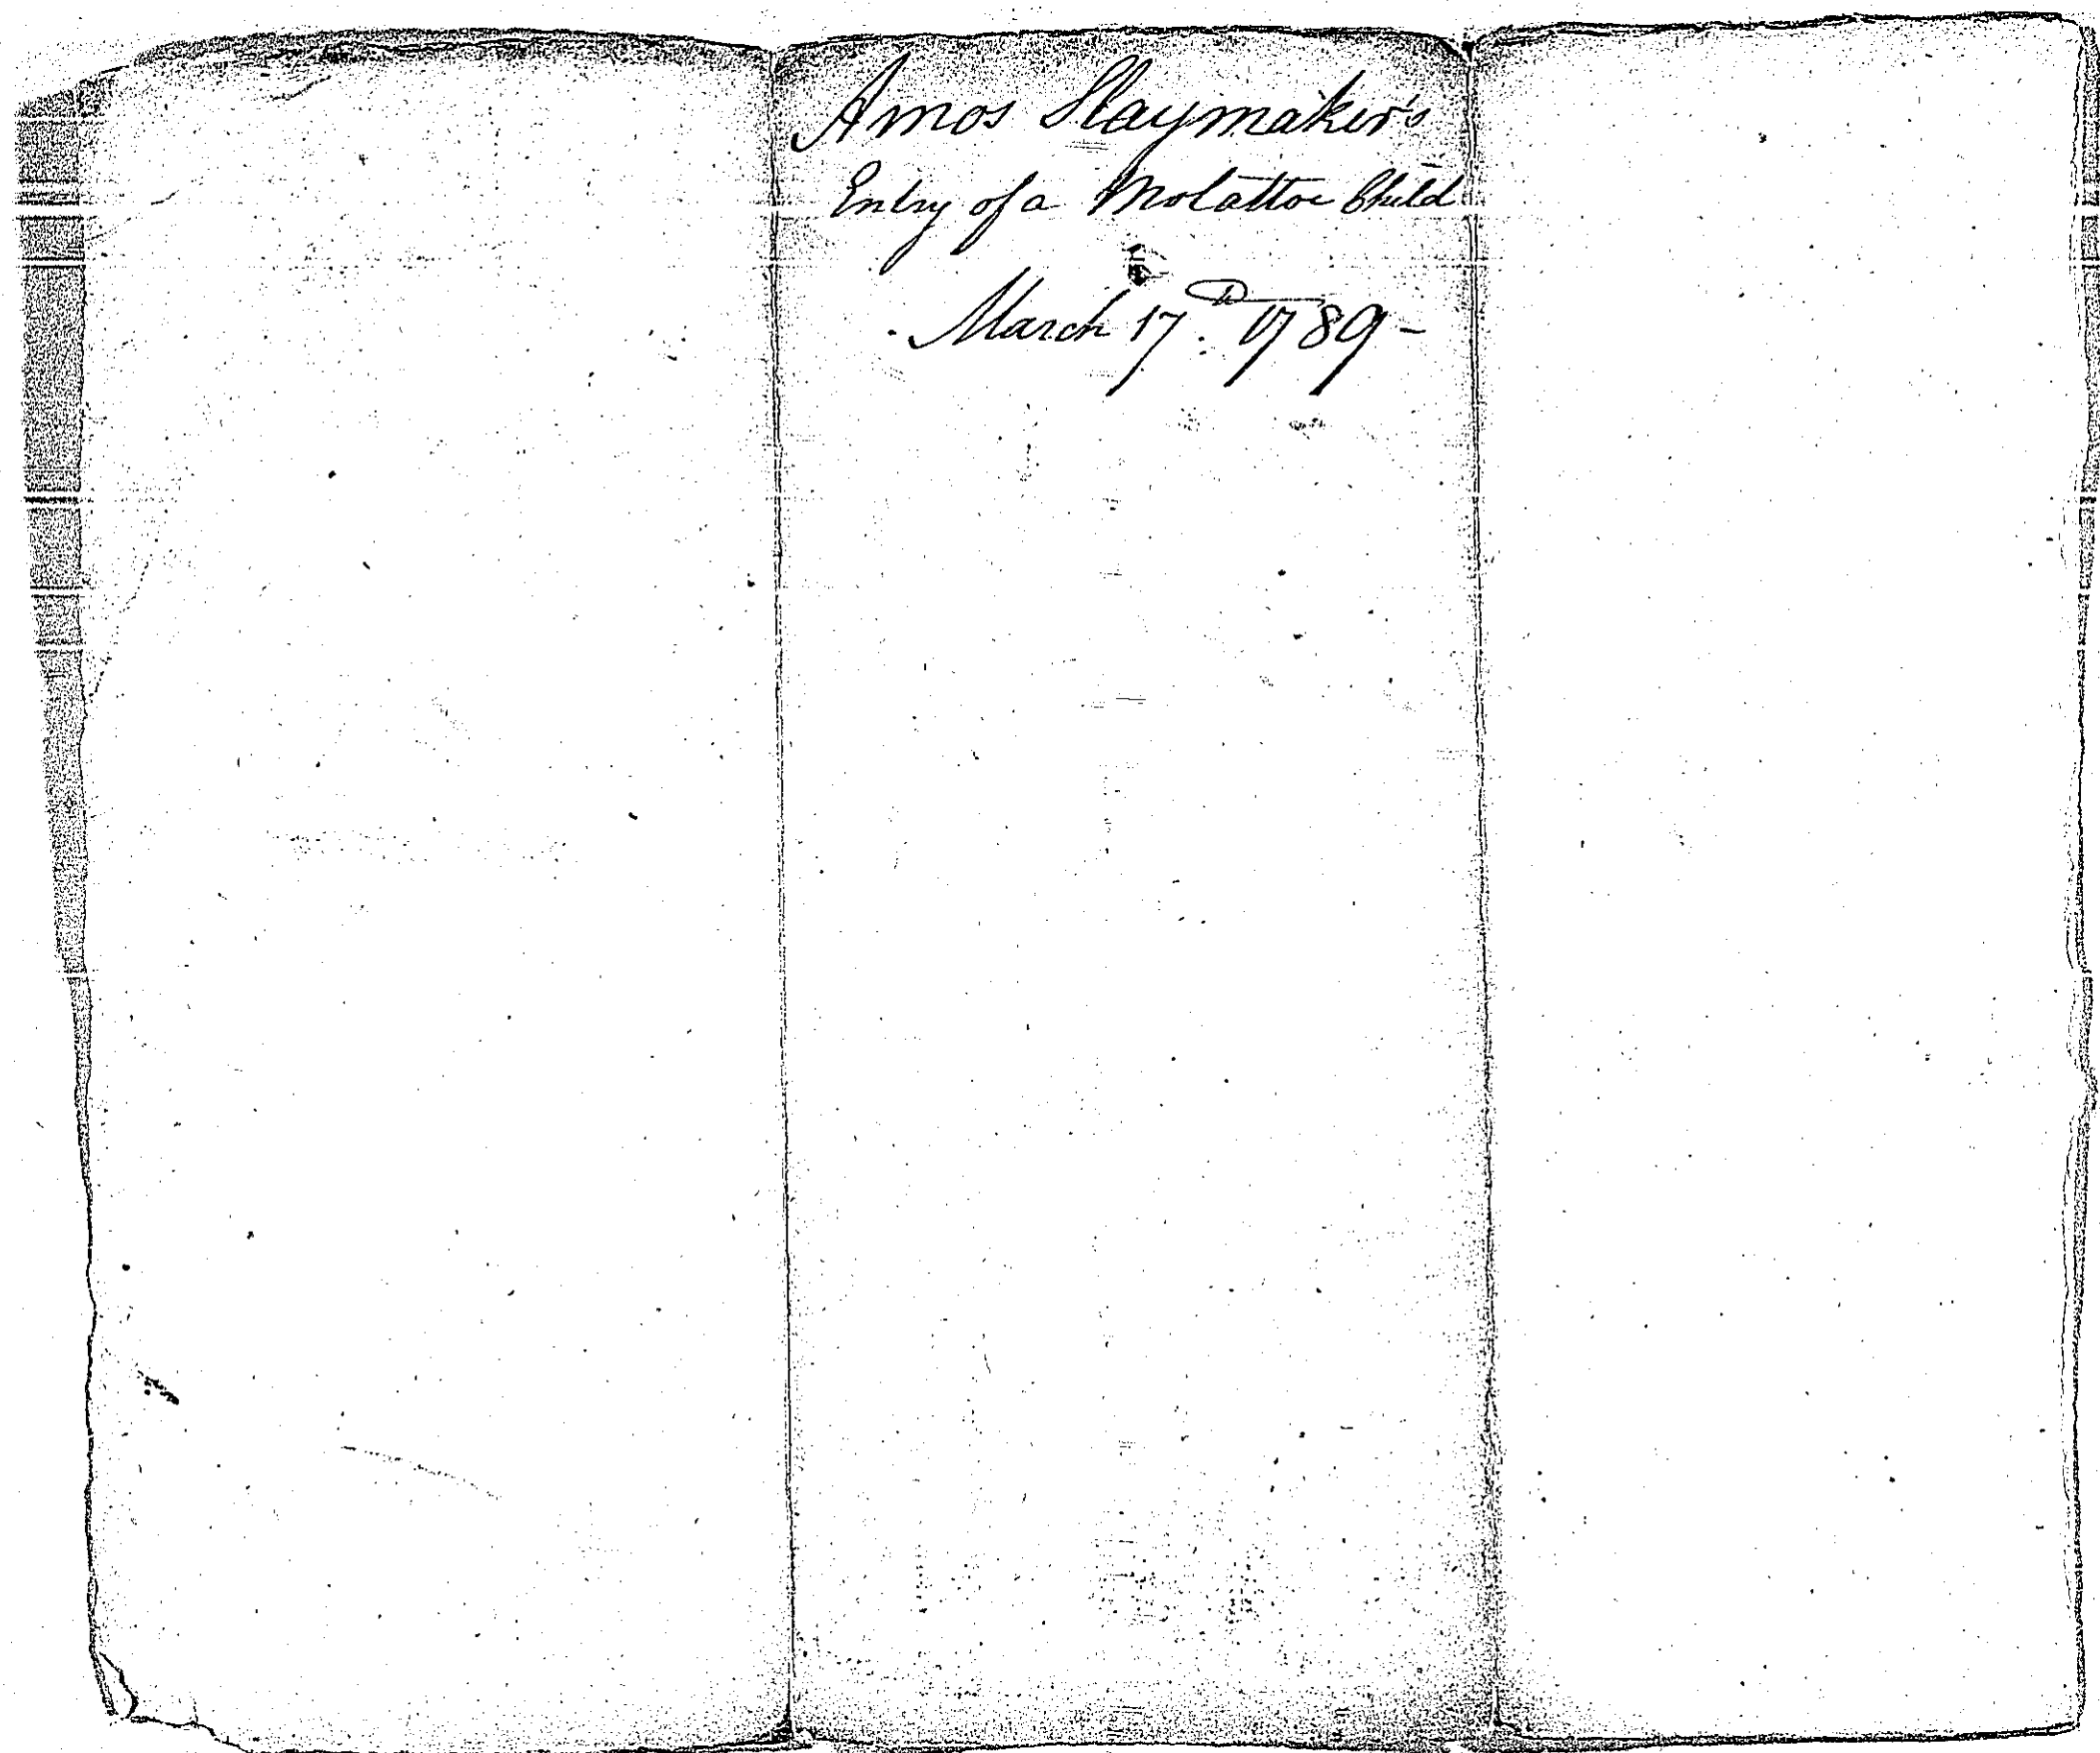 Amos Slaymaker's
Entry of a Molattoe Child
March 17.th 1789 -